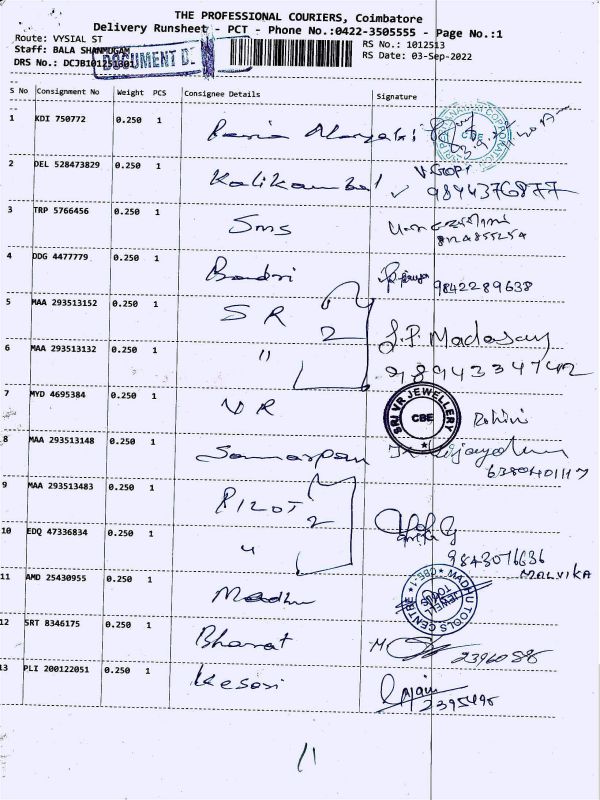 THE PROFESSIONAL COURIERS, Coimbatore
Delivery Runsheet - PCT - Phone No.:0422-3505555 - Page No.:1
Route: VYSIAL ST
RS No.: 1012513
Staff: BALA SHANMUGAM
RS Date: 03-Sep-2022
DOCUMENT DE
DRS No.: DCJB101251301
S No Consignment No Weight PCS Consignee Details Signature
1 KDI 750772 0.250 1
CBE
2 DEL 528473829 0.250 1 Kalikambal V. GOPI
9894376877
3 TRP 5766456 0.250 1 Sms
4 DDG 4477779 0.250 1 Badri 9842289638
5 MAA 293513152 0.250 1 S R 2 J.P. Madasay
6 MAA 293513132 0.250 1 " 9894334742
7 MYD 4695384 0.250 1 V R SRI VR JEWELLERY CBE Rohini
8 MAA 293513148 0.250 1
6380401117
9 MAA 293513483 0.250 1 2
10 EDQ 47336834 0.250 1 " 9843076636
MALVIKA
11 AMD 25430955 0.250 1 Madhu MADHU TOOLS CENTRE CBE-1 JEWELL TOOLS
12 SRT 8346175 0.250 1 Bharat
2396058
13 PLI 200122051 0.250 1 Kesari
2395495